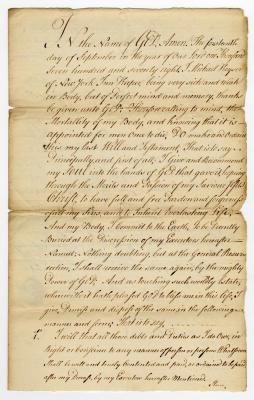 IN the Name of GOD, Amen. The fourteenth
day of September in the year of our Lord one Thousand
Seven hundred and seventy eight, I Michael
of New York Inn Keeper, being very sick and weak
in Body, but of Perfect mind and memory, thanks
be given unto GOD: Therefore calling to mind, the
Mortality of my Body, and knowing that it is
appointed for men once to die, DO make and ordain
this my last Will and Testament, That is to say
Principally, and first of all, I Give and Recommend
my Soul into the hands of GOD that gave it, hoping
through the Merits and Passion of my Saviour Jesus
Christ, to have full and free Pardon and forgiveness
of all my Sins, and to Inherit Everlasting Life,
And my Body, I commit to the Earth, to be Decently
Buried at the Discression of my Executors hereafter
Named: Nothing doubting, but at the General Resur-
rection, I shall receive the same again, by the mighty
Power of GOD. And as touching such worldly Estate,
wherewith it hath pleased GOD to bless me in this life, I
give, Devise and dispose of the same, in the following
manner and form; That is to say,
I will that all those debts and Duties as I do Owe, in
Right or Conscience to any manner of person or persons Whatsoever
Shall be well and truly Contented and paid, or ordained to be paid
after my Decease, by my Executors hereafter Mentioned.